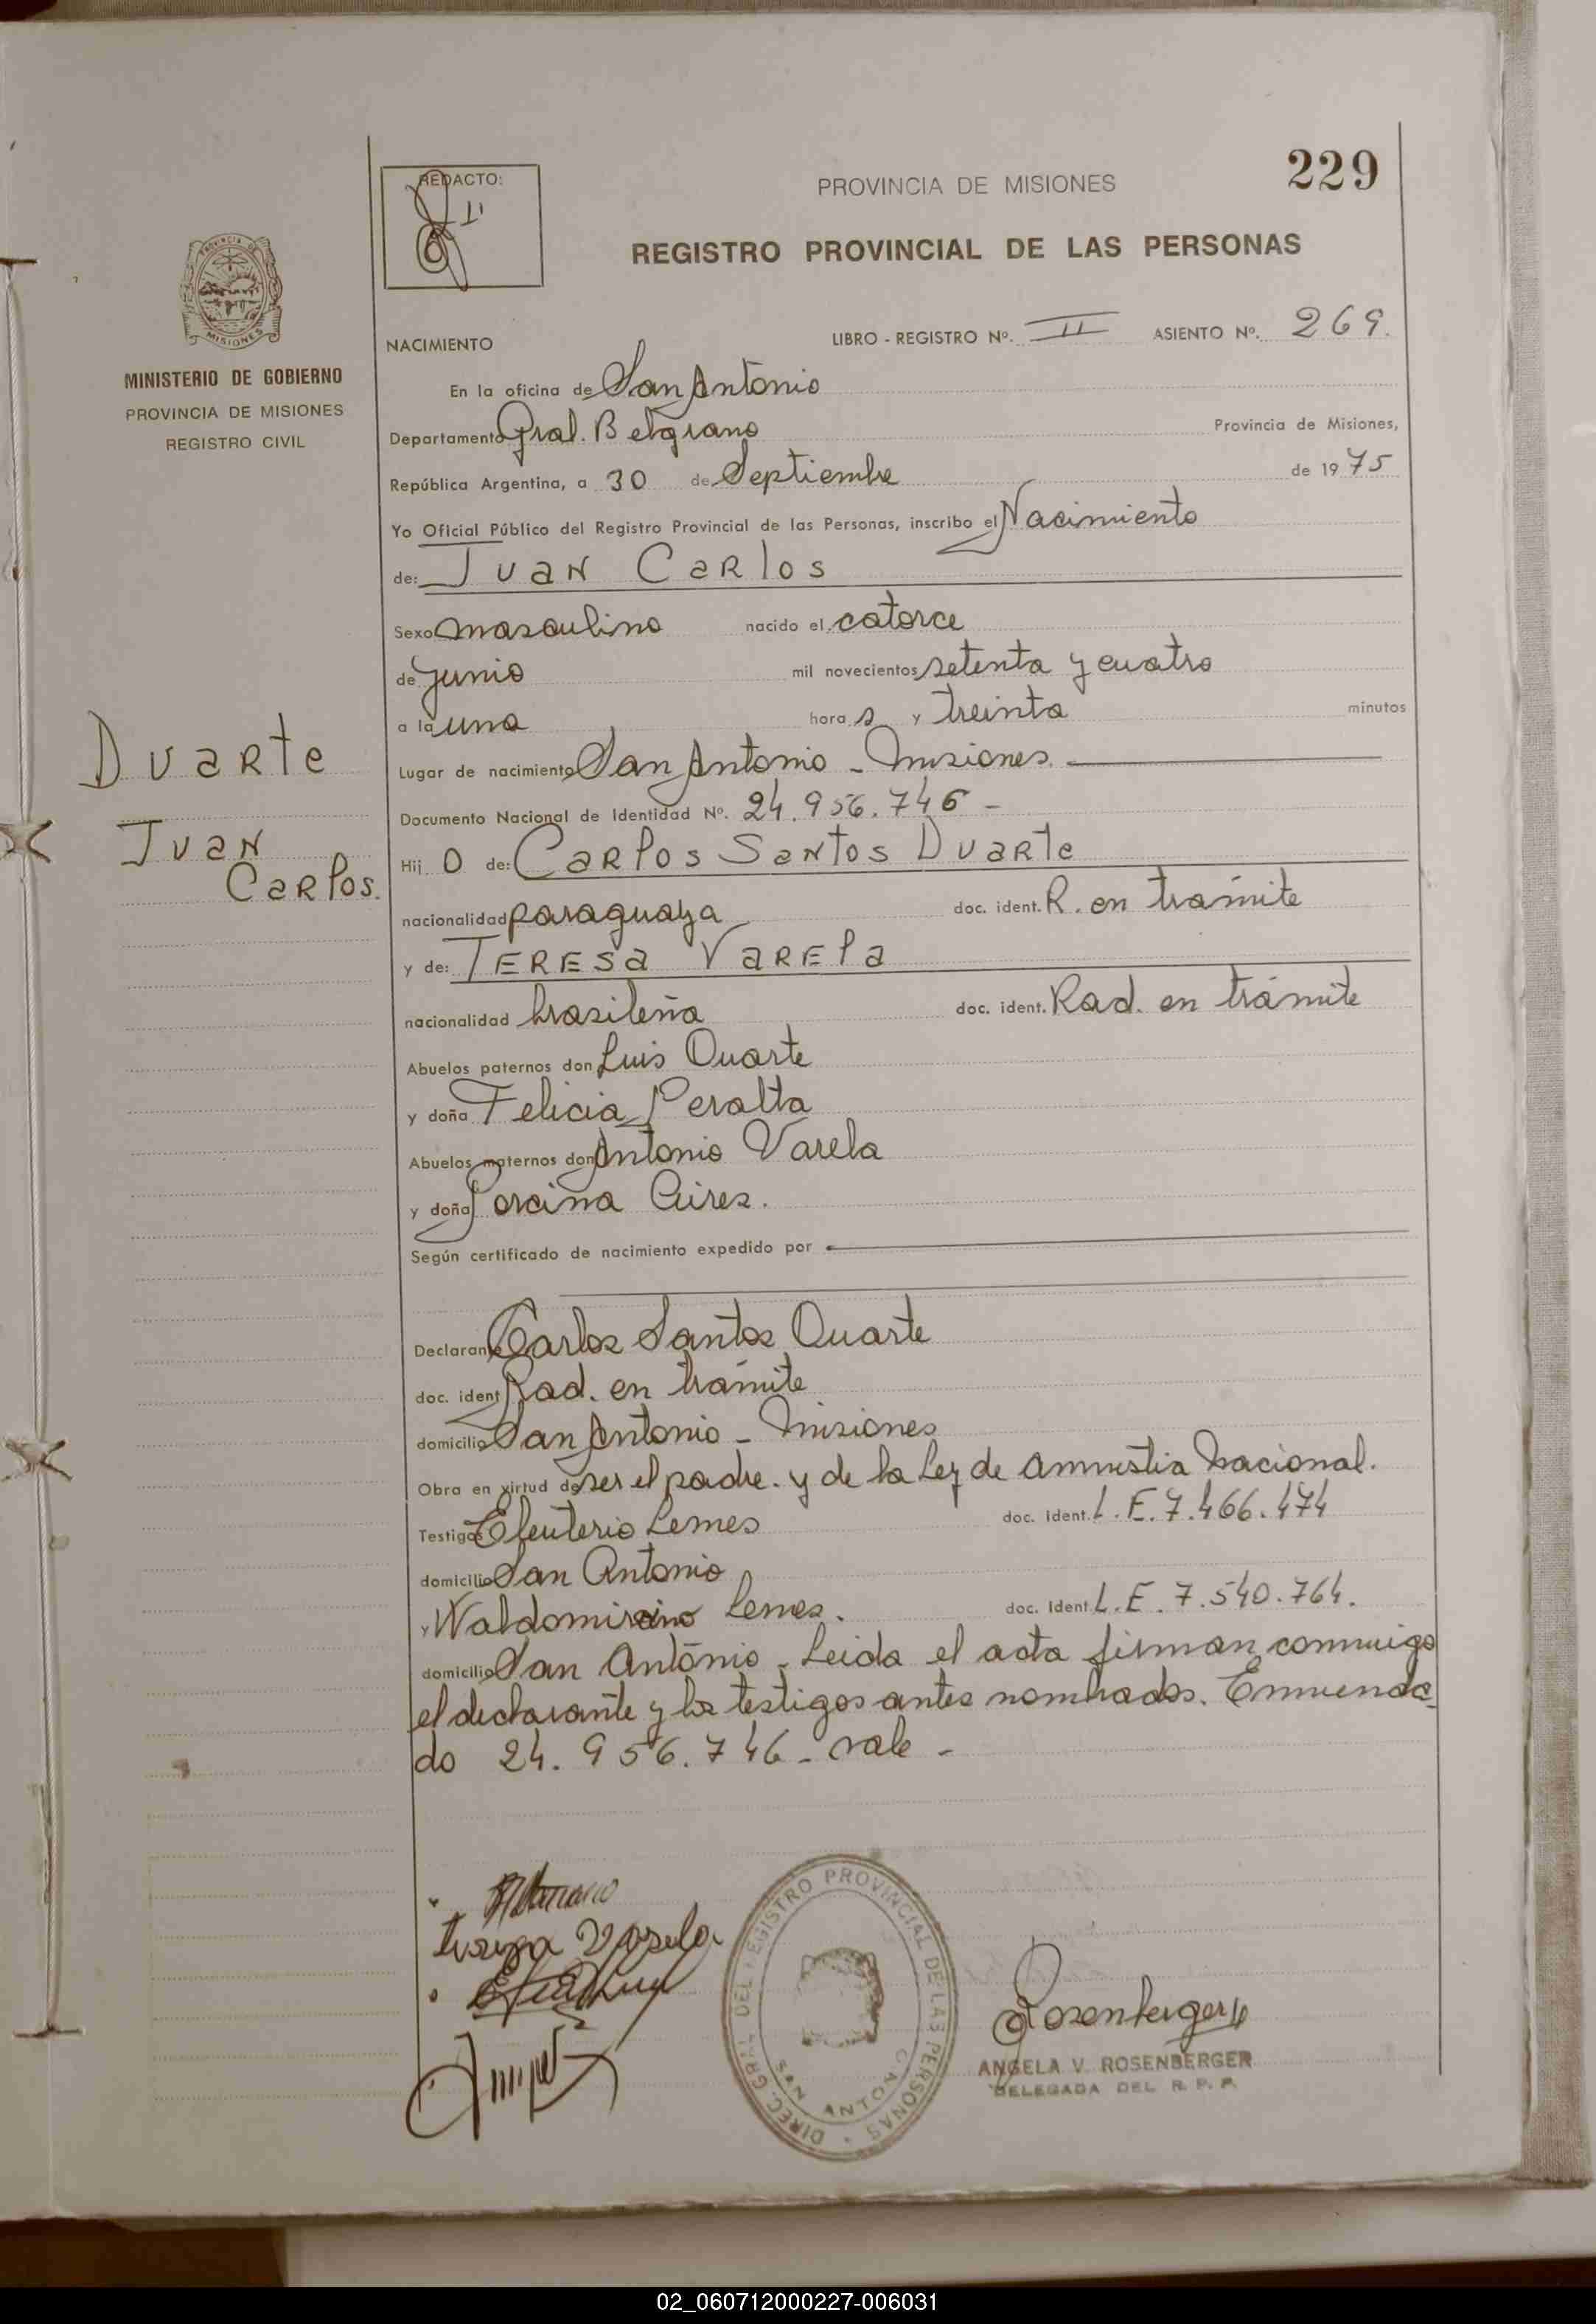 229
REDACTO:
PROVINCIA DE MISIONES
REGISTRO PROVINCIAL DE LAS PERSONAS
PROVINCIA DE MISIONES
MINISTERIO DE GOBIERNO
PROVINCIA DE MISIONES
REGISTRO CIVIL
Duarte
Juan
Carlos.
NACIMIENTO LIBRO - REGISTRO Nº. II ASIENTO Nº. 269.
En la oficina de San Antonio
Departamento Gral. Belgrano Provincia de Misiones,
República Argentina, a 30 de Septiembre de 1975
Yo Oficial Público del Registro Provincial de las Personas, inscribo el Nacimiento
de: Juan Carlos
Sexo masculino nacido el catorce
de junio mil novecientos setenta y cuatro
a la una hora s y treinta minutos
Lugar de nacimiento San Antonio - Misiones.
Documento Nacional de Identidad Nº. 24.956.746 -
Hij o de: Carlos Santos Duarte
nacionalidad paraguaya doc. ident. R. en trámite
y de: TERESa VaRela
nacionalidad brasileña doc. ident. Rad. en trámite
Abuelos paternos don Luis Duarte
y doña Felicia Peralta
Abuelos maternos don Antonio Varela
y doña Porcina Aires.
Según certificado de nacimiento expedido por
Declarante Carlos Santos Duarte
doc. ident Rad. en trámite
domicilio San Antonio - Misiones
Obra en virtud de ser el padre. y de la Ley de Amnistia Nacional.
Testigos Eleuterio Lemes doc. Ident. L.E. 7.466.474
domicilio San Antonio
y Waldomirino Lemes. doc. Ident. L.E. 7.540.764.
domicilio San António - Leida el acta firman conmigo
el declarante y los testigos antes nombrados. Enmenda-
do 24.956.746 - vale -
Varela
DIREC. GRAL. DEL REGISTRO PROVINCIAL DE LAS PERSONAS
SAN ANTONIO
Rosenberger
ANGELA V. ROSENBERGER
DELEGADA DEL R. P. P.
02_060712000227-006031